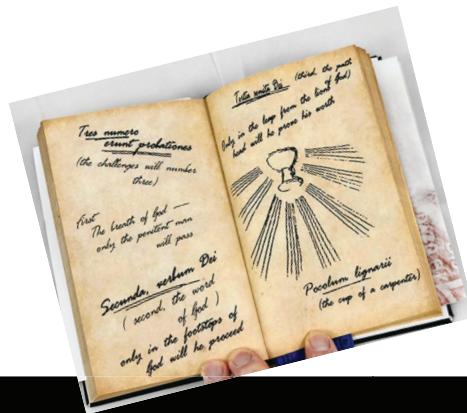 Tres numero
erunt probationes
(the challenges will number
three)
First
The breath of God —
only the penitent man
will pass
Secunda, verbum Dei
( second, the word
of God )
only in the footsteps of
God will he proceed
Dei (third, the path
of God)
Only in the leap from the lion's
head will he prove his worth
Pocolum lignarii
(the cup of a carpenter)